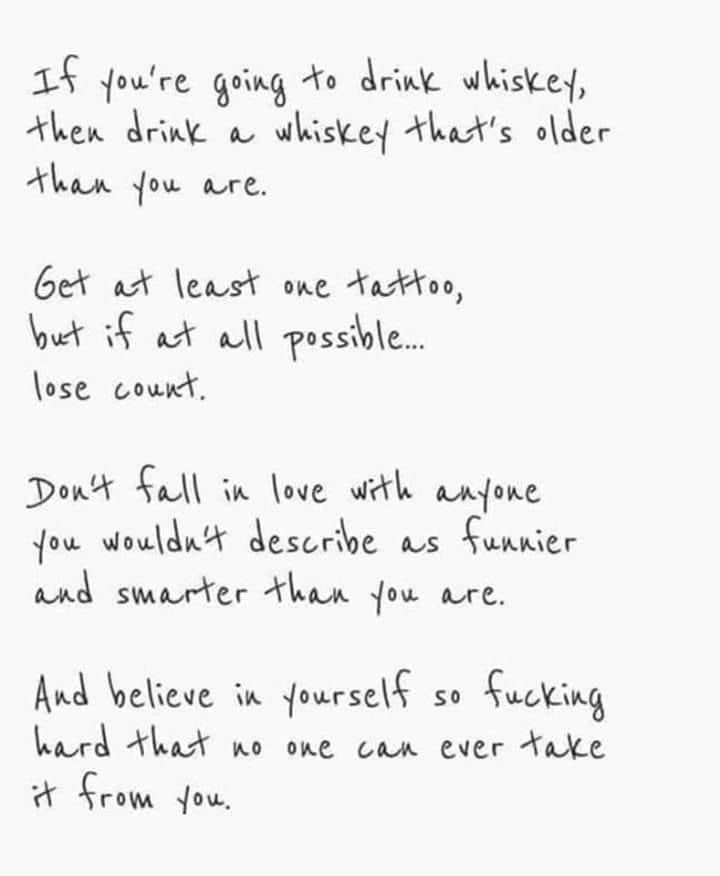 If you're going to drink whiskey,
then drink a whiskey that's older
than you are.
Get at least one tattoo,
but if at all possible...
lose count.
Don't fall in love with anyone
you wouldn't describe as funnier
and smarter than you are.
And believe in yourself so fucking
hard that no one can ever take
it from you.